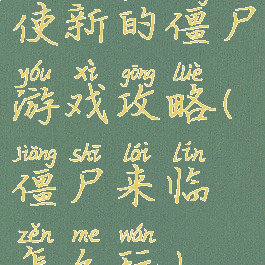 使新的僵尸
yóu xì gōng lüè
游戏攻略(
jiāng shī lái lín
僵尸来临
zěn me wán
怎么玩)